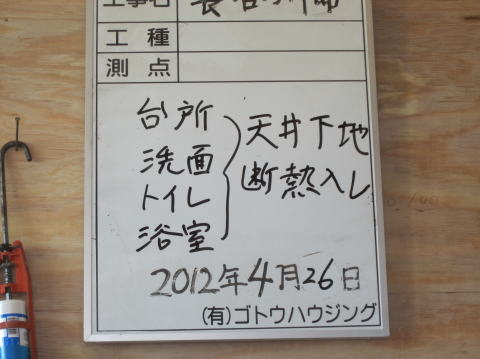 工事名
工種
測点
台所
洗面
トイレ
浴室
天井下地
断熱入レ
2012年4月26日
(有)ゴトウハウジング